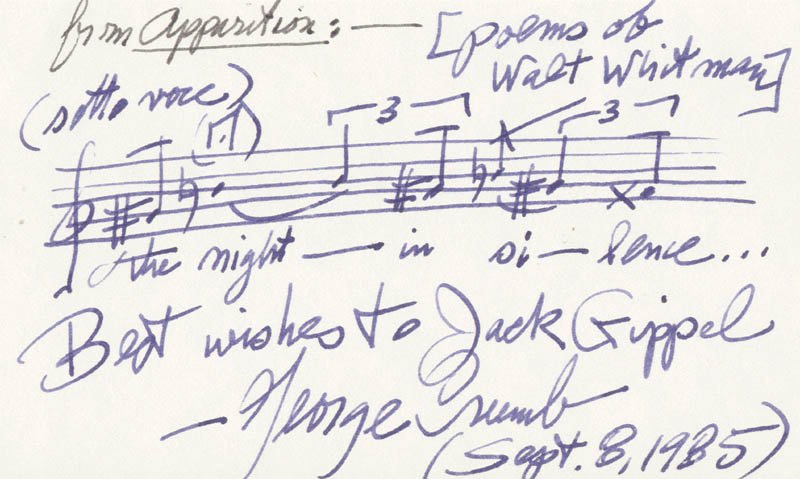 from Apparition: — [poems of
Walt Whitman]
(sotto voce)
3 3
the night — in si — lence...
Best wishes to Jack Gippel
— George Crumb
(Sept. 8, 1985)